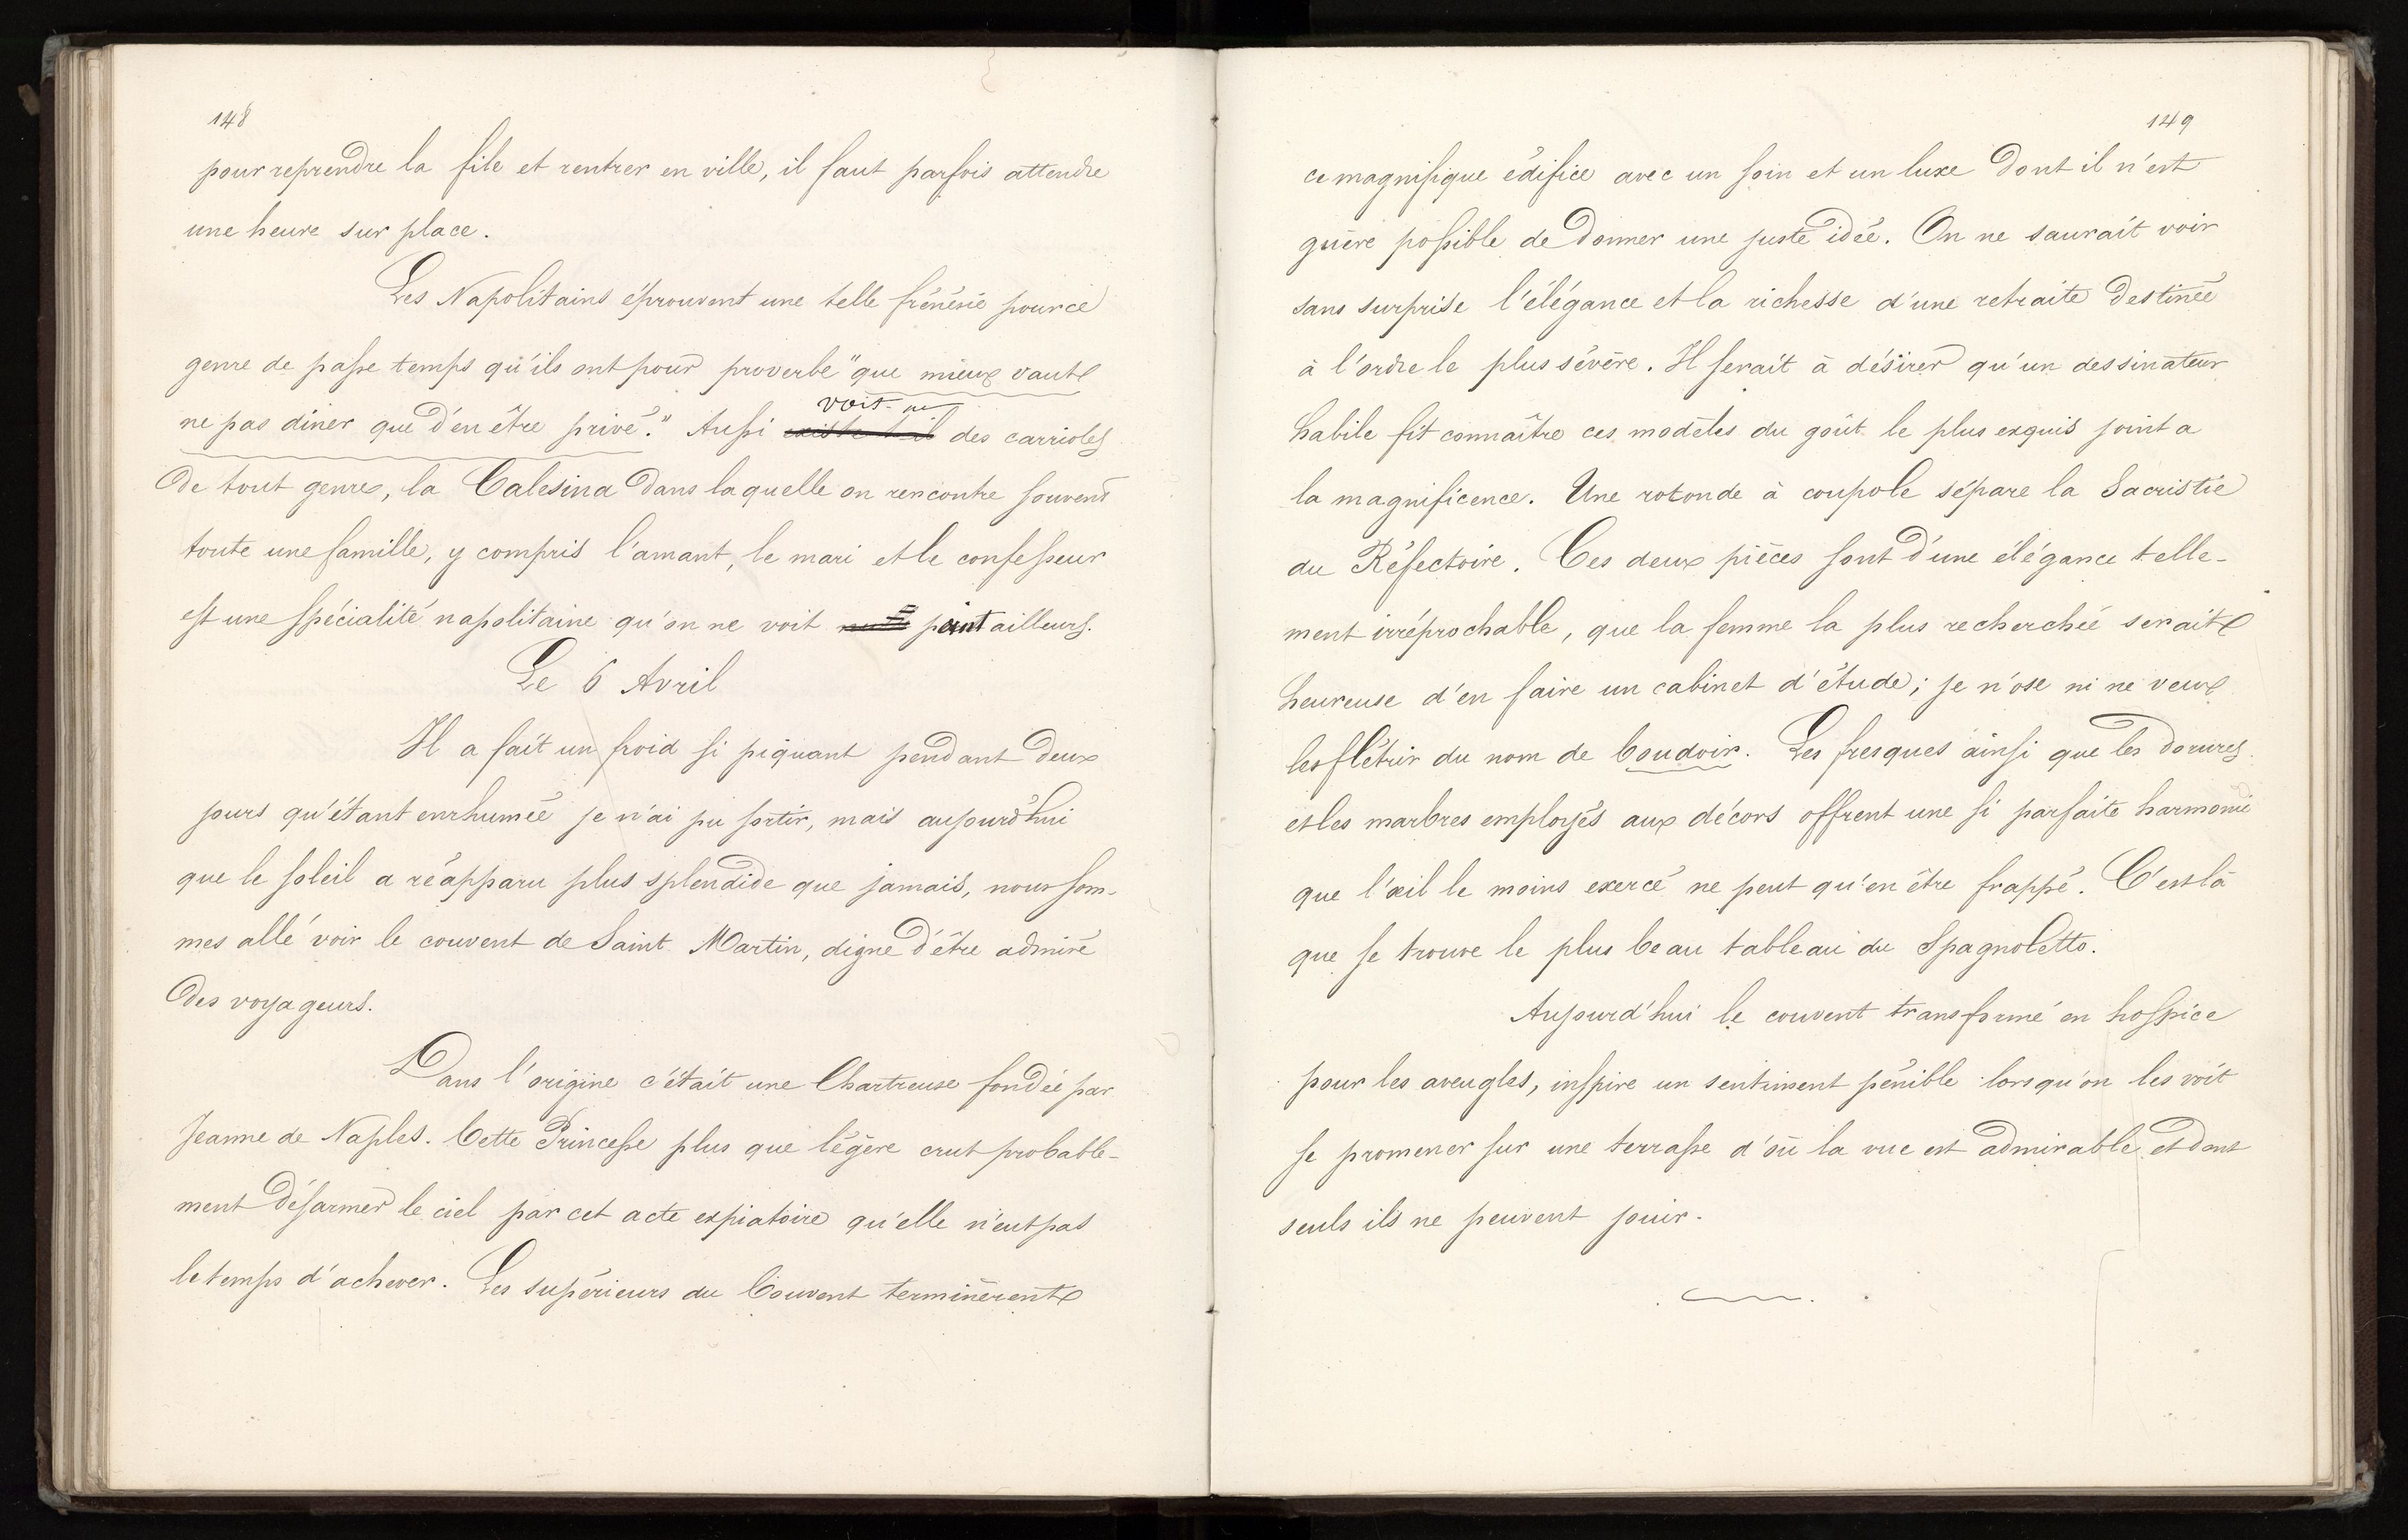 148
pour reprendre la file et rentrer en ville, il faut parfois attendre
une heure sur place.
Les Napolitains éprouvent une telle frénésie pour ce
genre de passe temps qu'ils ont pour proverbe "que mieux vaut
ne pas diner que d'en être privé." Aussi existe t-il voit-on des carrioles
de tout genre, la Calesina dans laquelle on rencontre souvent
toute une famille, y compris l'amant, le mari et le confesseur
est une spécialité napolitaine qu'on ne voit point ailleurs.
Le 6 Avril
Il a fait un froid si piquant pendant deux
jours qu'étant enrhumée je n'ai pu sortir, mais aujourd'hui
que le soleil a réapparu plus splendide que jamais, nous som-
mes allé voir le couvent de Saint Martin, digne d'être admiré
des voyageurs.
Dans l'origine c'était une Chartreuse fondée par
Jeanne de Naples. Cette Princesse plus que légère crut probable-
ment désarmer le ciel par cet acte expiatoire qu'elle n'eut pas
le temps d'achever. Les supérieurs du Couvent terminèrent
149
ce magnifique édifice avec un soin et un luxe dont il n'est
guère possible de donner une juste idée. On ne saurait voir
sans surprise l'élégance et la richesse d'une retraite destinée
à l'ordre le plus sévère. Il serait à désirer qu'un dessinateur
habile fit connaître ces modèles du goût le plus exquis joint a
la magnificence. Une rotonde à coupole sépare la Sacristie
du Réfectoire. Ces deux pièces sont d'une élégance telle-
ment irréprochable, que la femme la plus recherchée serait
heureuse d'en faire un cabinet d'étude; je n'ose ni ne veux
les flétrir du nom de boudoir. Les fresques ainsi que les dorures
et les marbres employés aux décors offrent une si parfaite harmonie
que l'œil le moins exercé ne peut qu'en être frappé. C'est là
que se trouve le plus beau tableau du Spagnoletto.
Aujourd'hui le couvent transformé en hospice
pour les aveugles, inspire un sentiment pénible lorsqu'on les voit
se promener sur une terrasse d'où la vue est admirable et dont
seuls ils ne peuvent jouir.